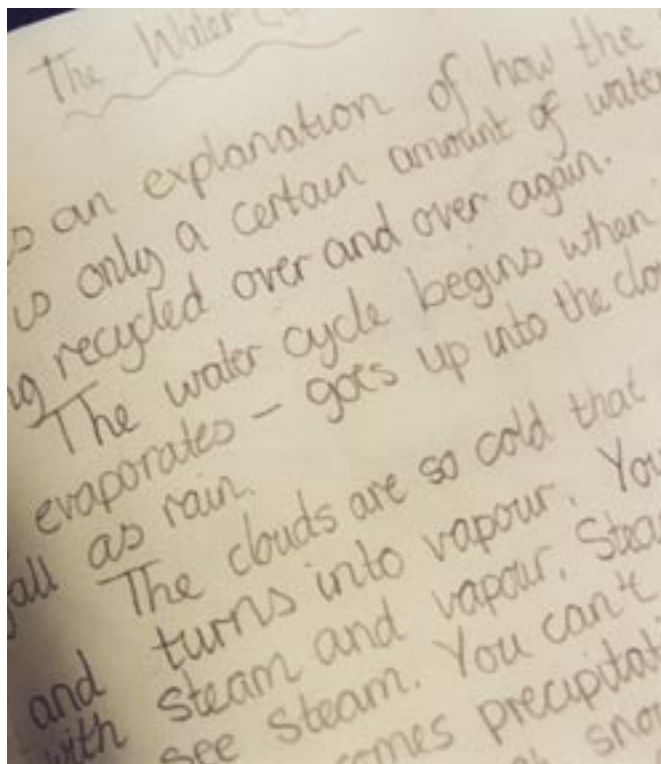 The Water Cy
is an explanation of how the
is only a certain amount of water
ng recycled over and over again.
The water cycle begins when
evaporates – goes up into the clou
fall as rain.
The clouds are so cold that
and turns into vapour. You
with steam and vapour. Stea
see steam. You can't
comes precipitati
snow